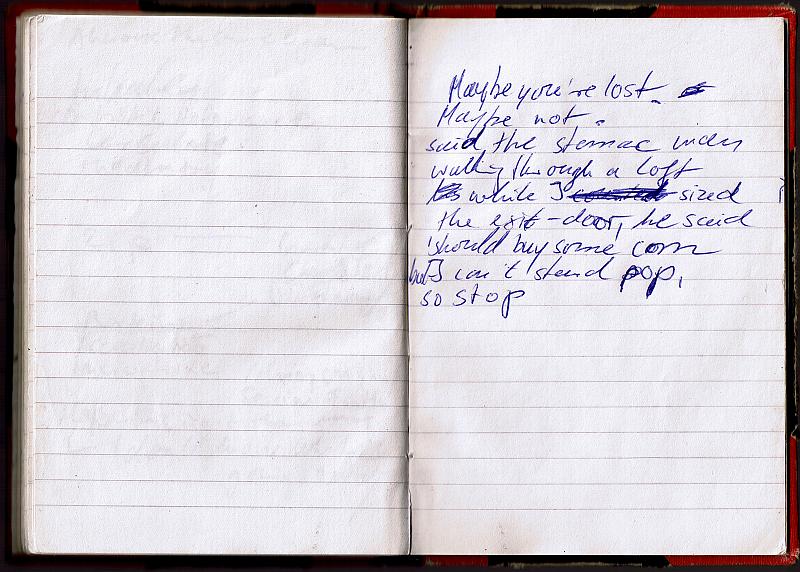 Maybe you're lost.
Maybe not.
said, the stomac man
walking through a loft
while I sized
the exit-door, he said
should buy some corn
but I can't stand pop,
so stop